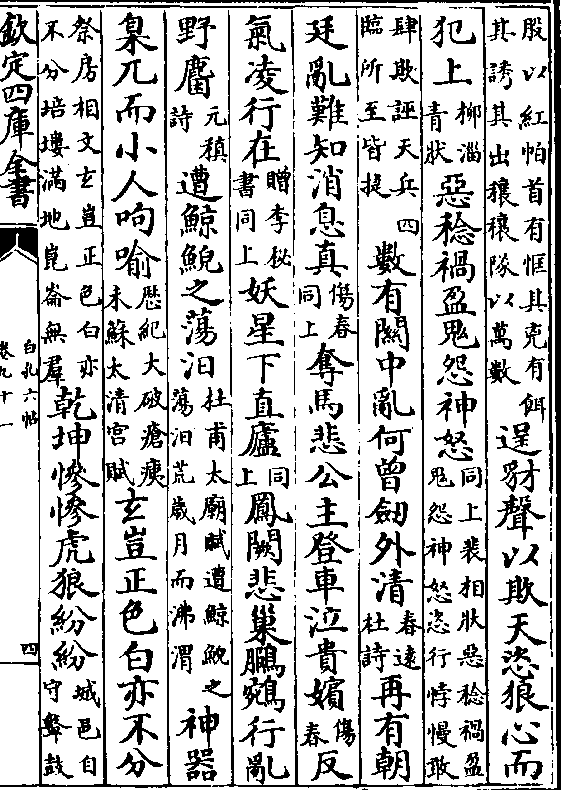 股以紅帕首有恇其克有餌其誘其出穰穰隊以萬數逞豺聲以欺天恣狼心而
犯上柳淄青狀惡稔禍盈鬼怨神怒同上裴相狀惡稔禍盈鬼怨神怒恣行悖慢敢
肆欺誣天兵四臨所至皆提數有關中亂何曾劒外清春遠杜詩再有朝
廷亂難知消息真傷春同上奪馬悲公主登車泣貴嬪傷春反
氣凌行在贈李秘書同上妖星下直廬同上鳳闕悲巢鵩鵷行亂
野麕元稹詩遭鯨鯢之蕩汩杜甫太廟賦遭鯨鯢之蕩汩荒歲月而沸渭神器
臬兀而小人呴喻歷紀大破瘡痍未蘇太清宮賦玄豈正色白亦不分
祭房相文玄豈正色白亦不分培塿滿地崑崙無羣乾坤慘慘虎狼紛紛城邑自守鼙鼓
欽定四庫全書
白孔六帖
卷九十一
四